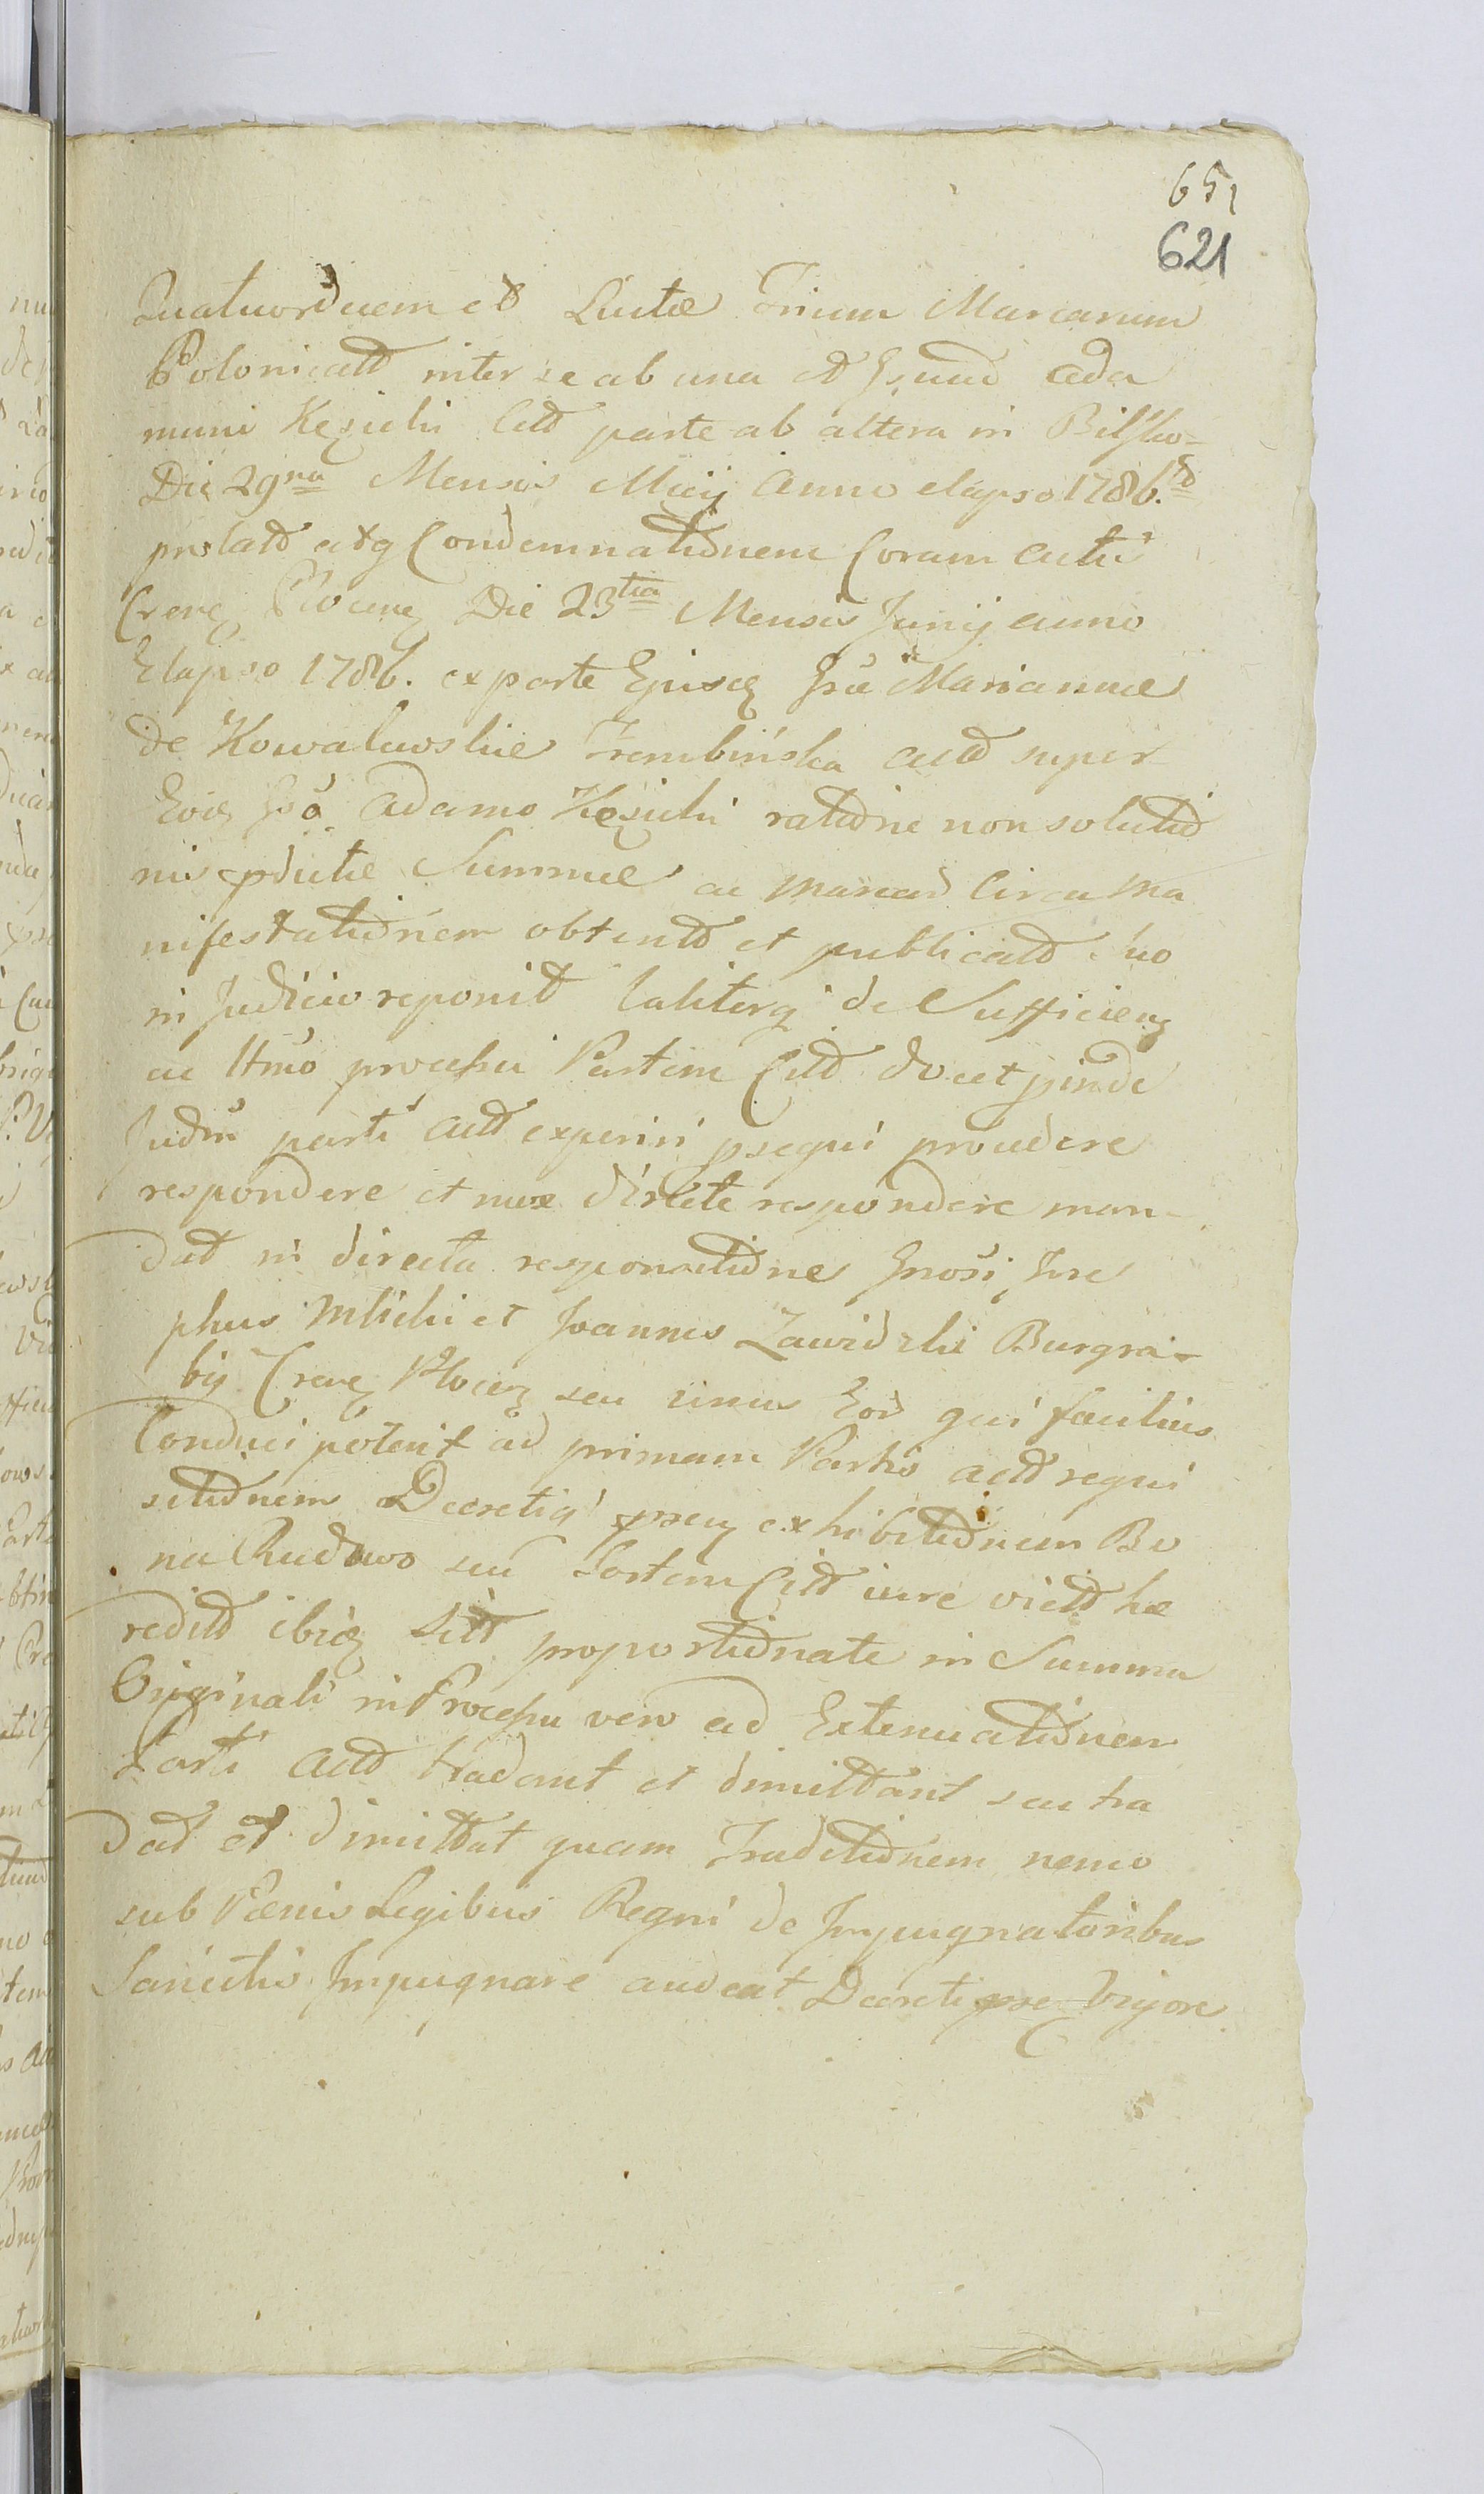 651
621
Quatuordecem et Luctae Trium Marcarum
Polonicatt inter se ab una et Gsum Ada
mum Kęsicki Citt parte ab altera in Bilsko-
Die 29na Mensis Maij Anno elapso 1786.to
prolatt atq Condemnationem Coram Actis
Crens Plocens Die 23tia Mensis Junij anno
Elapso 1786. ex parte Ejusd Gsae Mariannae
de Kowalewskie Trembińska Actt super
Eod Gso Adamo Kęsicki ratione non solutio
nis pdictae Summae ac marcar Circa Ma
nifestationem obtentt et publicatt suo
in Judicio reponit taliterq de Sufficien
ac Ittmo processu Partem Citt docet pinde
Judm parti Actt experiri psequi procedere
respondere et mox directe respondere man-
dat in directa responsione Gnosi Jose
phus Mlicki et Joannes Zawidzki Burgra-
bij Crens Plocen seu unus Eor qui facilius
Conduci poterit ad primam Partis Actt requi
sitionem Decretiq prsen exhibitionem Bo
na Rudowo seu Sortem Citt iure victt hae
reditt ibid sitt proportionate in Summa
Originali in Processu vero ad Extenuationem
Parti Actt tradant et dimittant seu tra
dat et dimittat quam Traditionem nemo
sub Paenis Legibus Regni de Impugnatoribus
Sancitis Impugnare audeat Decreti prse Vigore